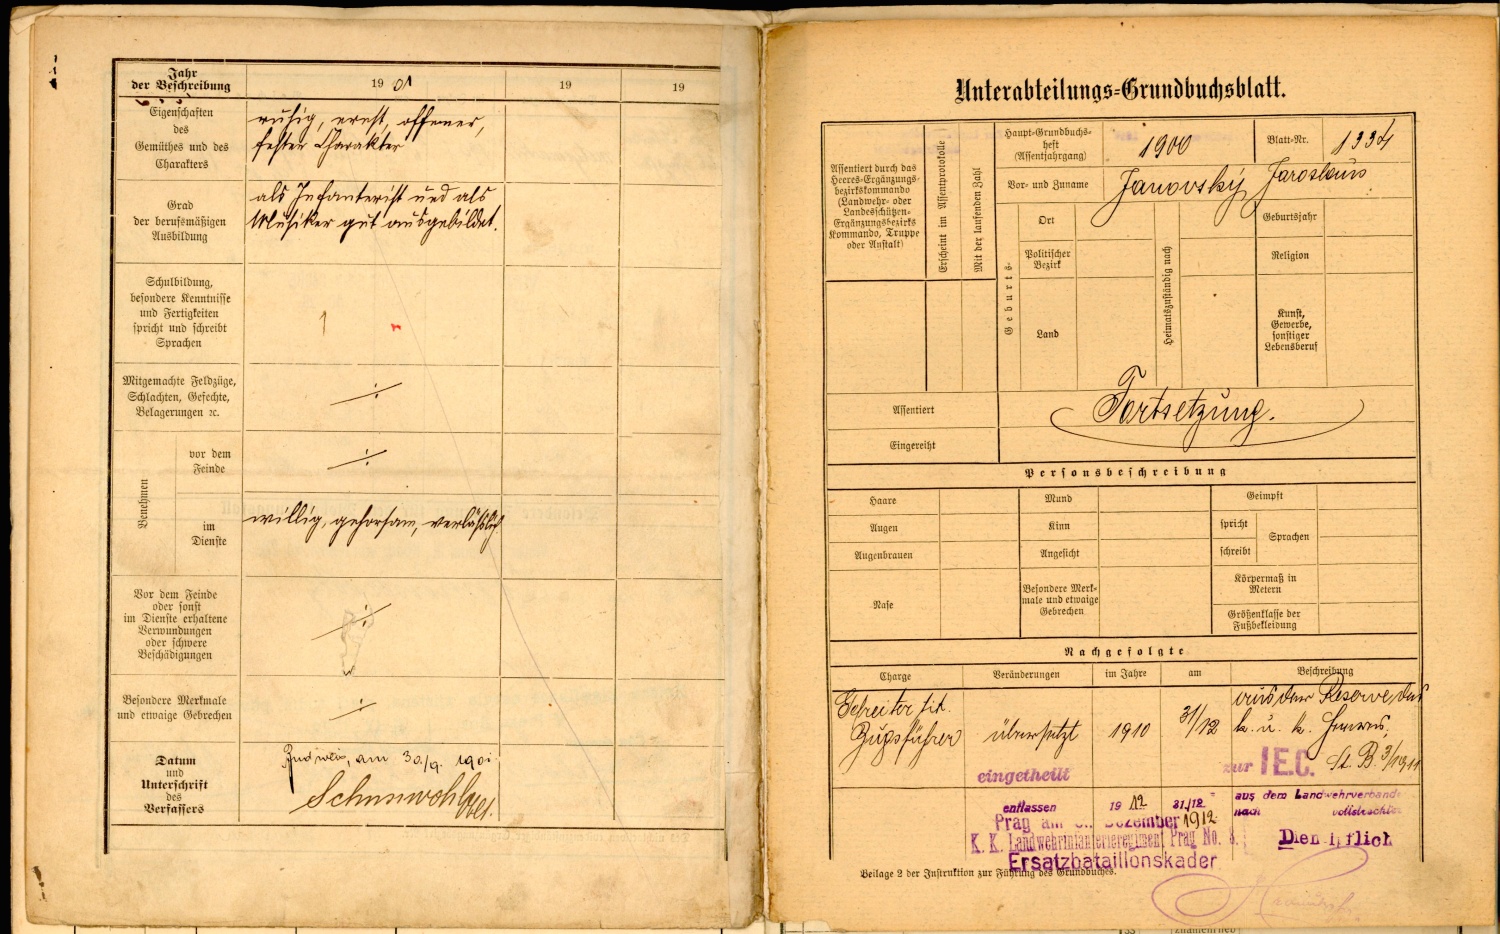 Jahr
der Beschreibung
19 01
19
19
Eigenschaften
des
Gemüthes und des
Charakters
ruhig, ernst, offener,
fester Charakter
Grad
der berufsmäßigen
Ausbildung
als Infanterist und als
Musiker gut ausgebildet.
Schulbildung,
besondere Kenntnisse
und Fertigkeiten
spricht und schreibt
Sprachen
1
Mitgemachte Feldzüge,
Schlachten, Gefechte,
Belagerungen ꝛc.
÷
Benehmen
vor dem
Feinde
÷
im
Dienste
willig, gehorsam, verläßlich
Vor dem Feinde
oder sonst
im Dienste erhaltene
Verwundungen
oder schwere
Beschädigungen
÷
Besondere Merkmale
und etwaige Gebrechen
÷
Datum
und
Unterschrift
des
Verfassers
Budweis, am 30./9. 1901.
Unterabteilungs-Grundbuchsblatt.
Assentiert durch das
Heeres-Ergänzungs-
bezirkskommando
(Landwehr- oder
Landesschützen-
Ergänzungsbezirks
Kommando, Truppe
oder Anstalt)
Erscheint im Assentprotokolle
Mit der laufenden Zahl
Haupt-Grundbuchs-
heft
(Assentjahrgang)
1900
Blatt-Nr.
1334
Vor- und Zuname
Janovský Jaroslaus
Geburts-
Ort
Politischer
Bezirk
Land
Heimatszuständig nach
Geburtsjahr
Religion
Kunst,
Gewerbe,
sonstiger
Lebensberuf
Assentiert
Fortsetzung.
Eingereiht
Personsbeschreibung
Haare
Mund
Geimpft
Augen
Kinn
spricht
Sprachen
Augenbrauen
Angesicht
schreibt
Nase
Besondere Merk-
male und etwaige
Gebrechen
Körpermaß in
Metern
Größenklasse der
Fußbekleidung
Nachgefolgte
Charge
Veränderungen
im Jahre
am
Beschreibung
Gefreiter tit.
Zugsführer
übersetzt
1910
31/12
aus der Reserve des
k. u. k. Heeres,
St. B. 3/1911
eingetheilt
zur IEC.
entlassen
19 12
31./12.
aus dem Landwehrverbande
nach
Prag am
Dezember 1912
K. K. Landwehrinfanterieregiment Prag No. 8.
Ersatzbataillonskader
Beilage 2 der Instruktion zur Führung des Grundbuches.